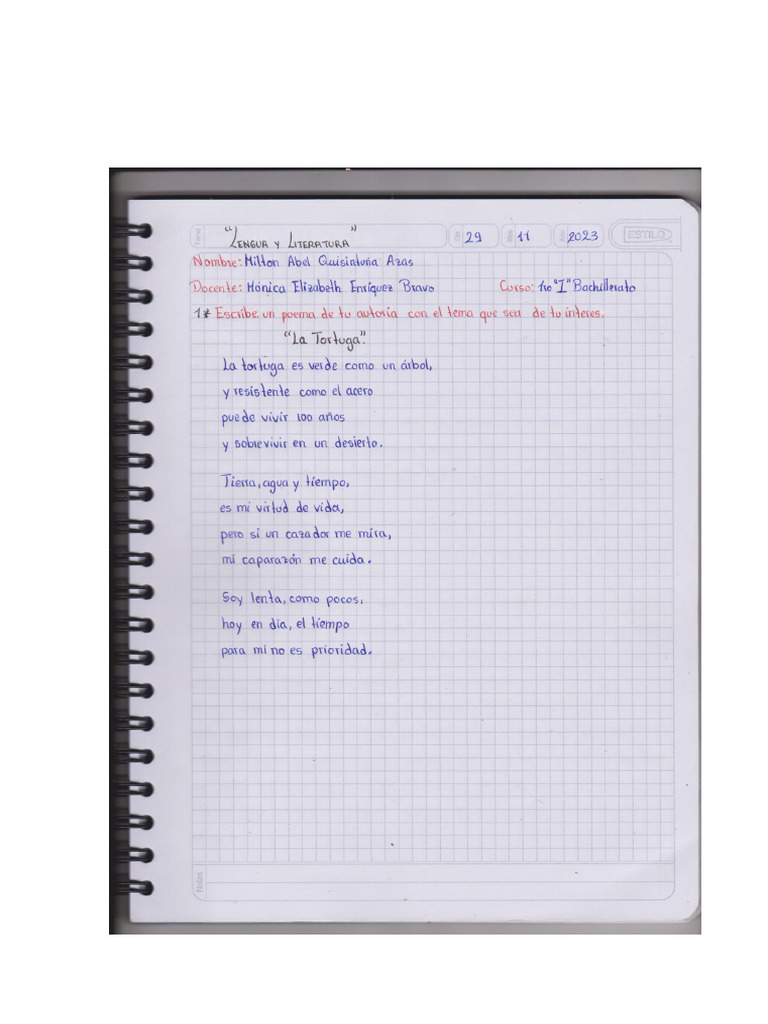 Tema "LENGUA Y LITERATURA" Día 29 Mes 11 Año 2023 ESTILO
Nombre: Milton Abel Quisintuña Azas
Docente: Mónica Elizabeth Enríquez Bravo Curso: 1ro "I" Bachillerato
1* Escribe un poema de tu autoría con el tema que sea de tu interes.
"La Tortuga".
La tortuga es verde como un árbol,
y resistente como el acero
puede vivir 100 años
y sobrevivir en un desierto.
Tierra, agua y tiempo,
es mi virtud de vida,
pero si un cazador me mira,
mi caparazón me cuida.
Soy lenta, como pocos,
hoy en día, el tiempo
para mi no es prioridad.
Notas